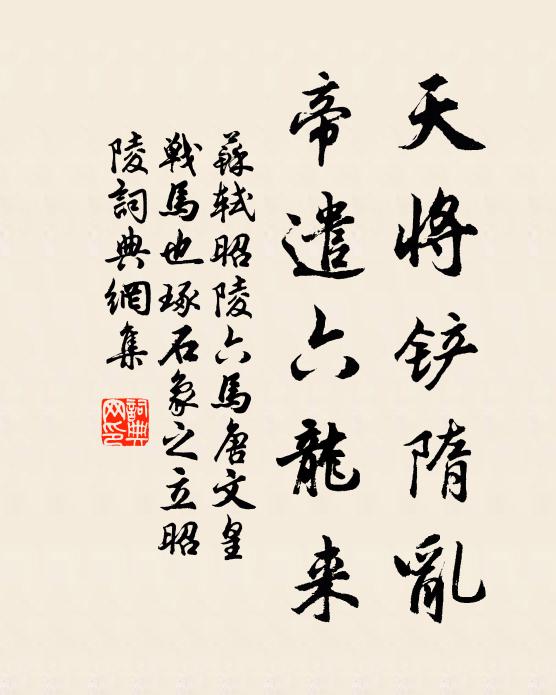 天将铲隋亂
帝遣六龍来
蘇軾昭陵六馬唐文皇
戰馬也琢石象之立昭
陵詞典網集
詞典
网印